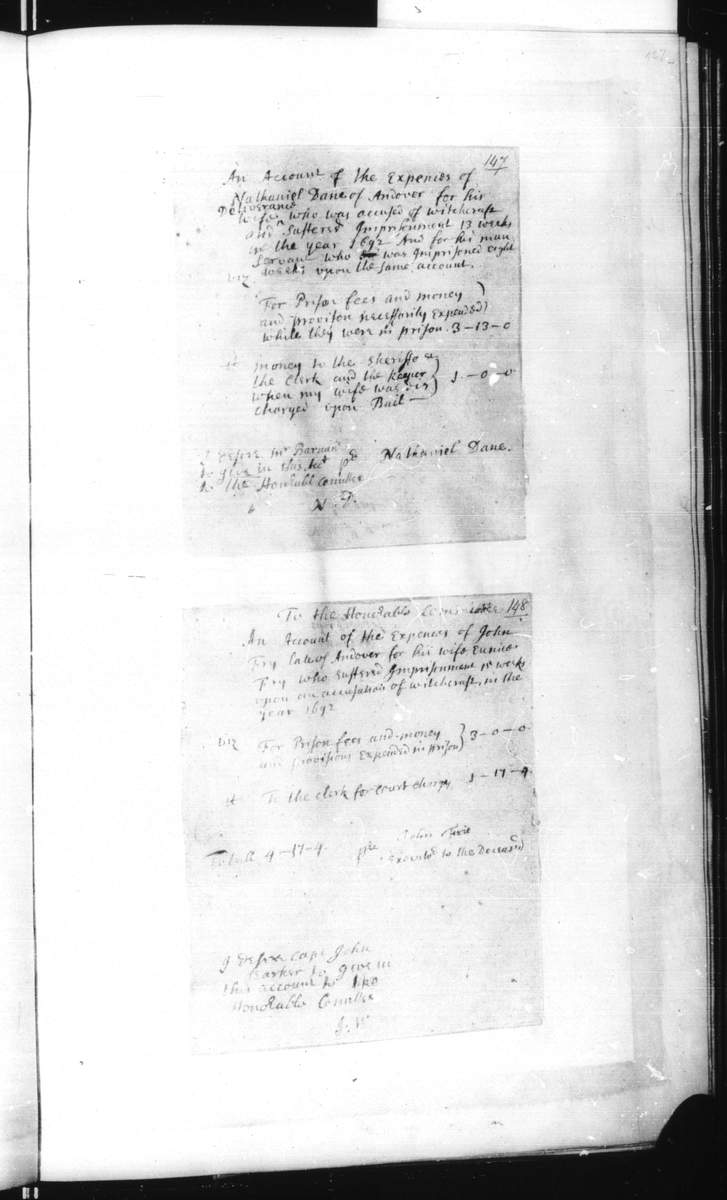 147
An Account of the Expences of
Nathaniel Dane of Andover for his
Deliverance
wife who was accused of witchcraft
and Suffered Imprisonment 13 weeks
in the year 1692 And for his man
Servant who was Imprisoned eight
viz weeks upon the same account.
For Prison fees and money
and provison necessarily Expended
while they were in prison. 3-13-0
It money to the Sheriffe &
the Clerk and the keeper
when my wife was dis
charged upon Bail — 1-0-0
I desire mr Barnard
to give in this Act pr Nathaniel Dane.
to the Honorabl Comittee
N. D.
To the Honorable Committee 148
An Account of the Expences of John
Fry late of Andover for his wife Eunice
Fry who suffered Imprisonment weeks
upon an accusation of witchcraft, in the
year 1692
viz For Prison fees and money
and provisions Expended in prison 3-0-0
It To the clerk for court charges 1-17-4
Totall 4-17-4. John Frie
Executor to the Deceased
I desire Capt John
Barker to give in
this account to the
Honorable Comittee
J. F.